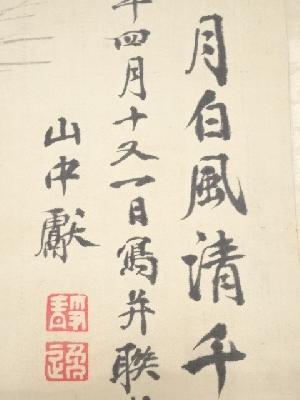 月白風清千
年四月十又一日寫并聯
山中獻